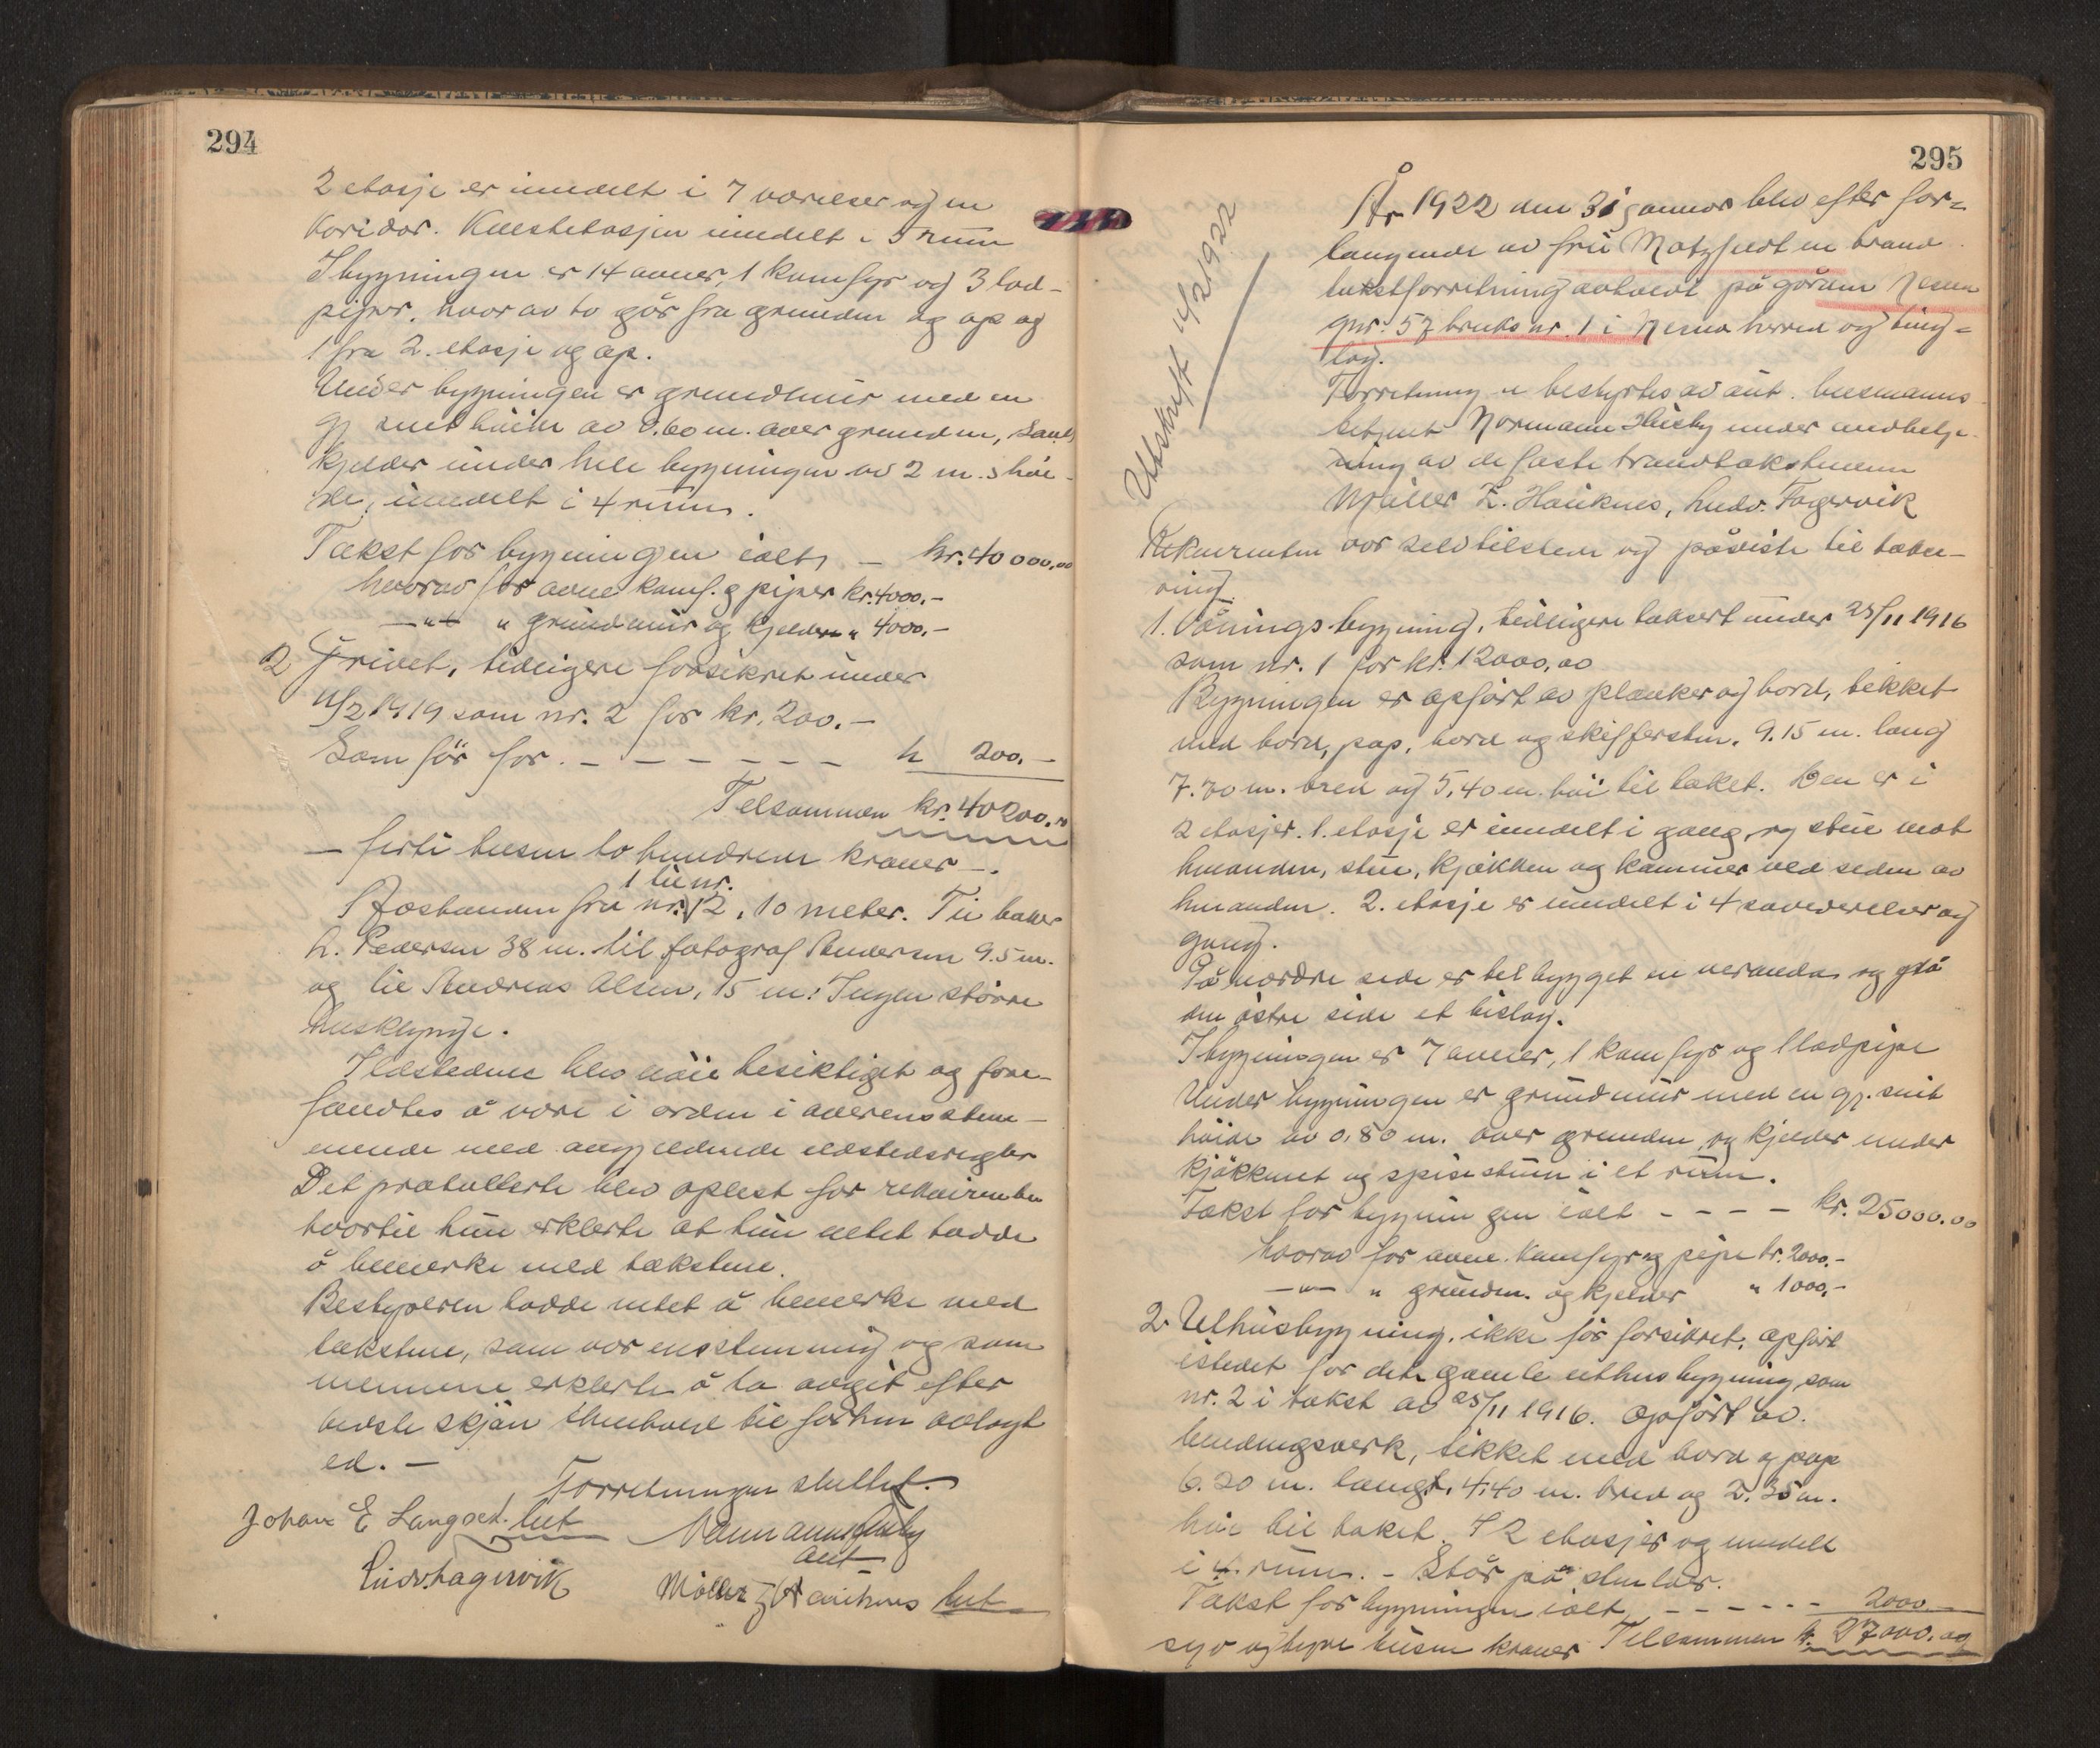 294
2 etasje er inndelt i 7 værelser og en
koridor. Kvistetasjen inndelt i 5 rum
I bygningen er 14 ovner, 1 komfyr og 3 lod-
piper, hvor av to går fra grunden og op og
1 fra 2. etasje og op.
Under bygningen er grundmur med en
gj. snit høide av 0.60 m. over grunden, samt
kjelder under hele bygningen av 2 m.s høi-
de, inndelt i 4 rum.
Takst for bygningen ialt, – kr. 40 000,00
hvorav for ovne komf. g piper kr. 4000.–
–"– " grundmur og kjelder " 4000.–
2 Privet, tidligere forsikret under
11/2 1919 som nr. 2 for kr. 200.–
Som før for. – – – – – – – " 200.–
Tilsammen kr. 40200.00
– firti tusen to hundrede kroner –.
1 til nr.
Avstanden fra nr. 2, 10 meter. Til baker
H. Pedersen 38 m. til fotograf Andersen 9.5 m.
og til Andreas Olsen, 15 m. Ingen større
husklynge.
Ildstedene blev nøie besiktiget og fore-
fandtes å være i orden i overensstem-
mende med angjeldende ildstedsregler
Det protokollerte blev oplest for rekvirenten
hvortil hun erklerte at hun intet hadde
å bemerke med takstene.
Bestyreren hadde intet å bemerke med
takstene, som var enstemmig og som
mennene erklerte å ha avgit efter
bedste skjøn i henhold til før hen avlagt
ed. –
Forretningen sluttet.
Johan E Langset. lut Normann Husby
aut
Ludv. Fagervik Møller Z Hauknes lut
295
Utskrift 11/2 1922
År 1922 den 31 januar blev efter for=
langende av fru Motzfeldt en brand
takstforretning avholdt på gården Nesna
gnr. 57 bruks nr. 1 i Nesna herred og ting=
lag.
Forretningen bestyrtes av aut. lensmanns
betjent Normann Husby under medhelp-
ning av de faste brandtakstmenn
Møller Z. Hauknes, Ludv. Fagervik
Rekvirenten var selv tilstede og påviste til takse-
ring.
1. Våningsbygning, tidligere taksert under 25/11 1916
som nr. 1 for kr. 12000,00
Bygningen er opført av planker og bord, tekket
med bord, pap, bord og skifferstein. 9.15 m. lang
7.70 m. bred og 5,40 m. høi til taket. Den er i
2 etasjer. 1. etasje er inndelt i gang, og stue mot
hinanden, stue, kjøkken og kammer ved siden av
hinanden. 2. etasje er inndelt i 4 soveværelser og
gang.
På nordre side er tilbygget en veranda og på
den østre side et bislag.
I bygningen er 7 ovner, 1 komfyr og 1 lodpipe
Under bygningen er grundmur med en gj. snit
høide av 0,80 m. over grunden og kjelder under
kjøkkenet og spisestuen i et rum.
Takst for bygningen ialt – – – – kr. 25000.00
hvorav for ovne. komfyr og pipe kr. 2000.–
–"– " grundm. og kjelder " 1000.–
2. Uthusbygning, ikke før forsikret, opført
istedet for det gamle uthusbygning som
nr. 2 i takst av 25/11 1916. Opført av.
bindingsverk, tekket med bord og pap
6.20 m. langt, 4,40 m. bred og 2.35 m.
høi til taket. I 2 etasjer og inndelt
i 4 rum. – Står på stolper.
Takst for bygningen ialt, – – – – – – 2000.–
syv og tyve tusen kroner Tilsammen kr. 27000.00